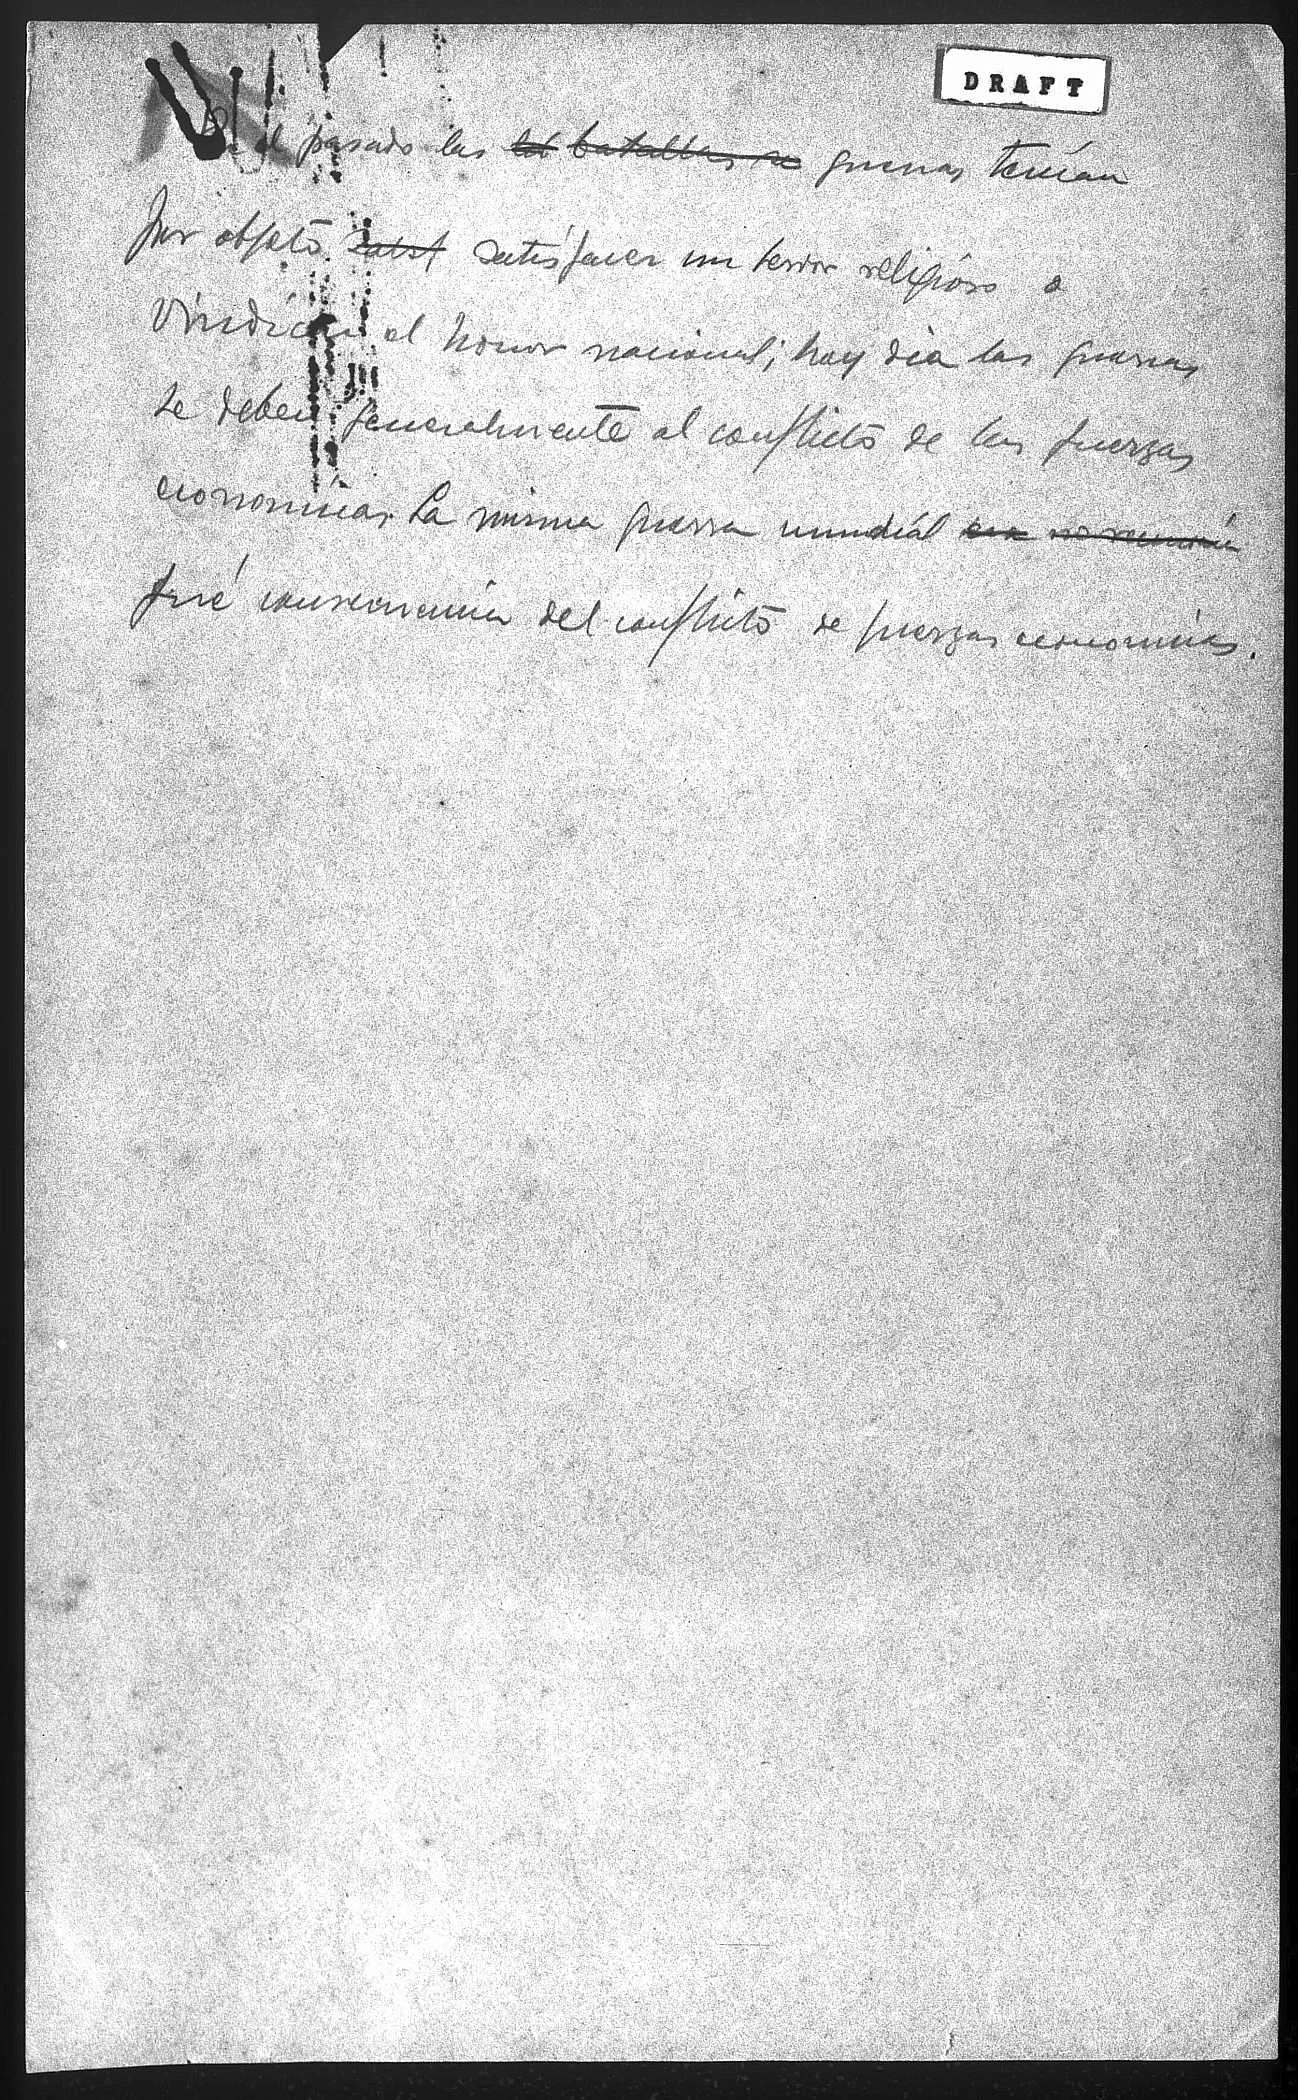 DRAFT
el pasado las las batallas se guerras tenían
por objeto satisf satisfacer un fervor religioso o
vindicar el honor nacional; hoy dia las guerras
se deben generalmente al conflicto de las fuerzas
economicas. La misma guerra mundial
fué consecuencia del conflicto de fuerzas economicas.